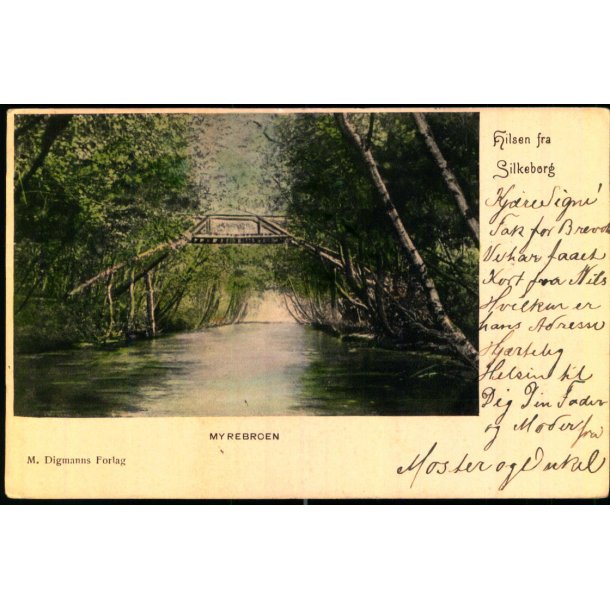 Hilsen fra
Silkeborg
Kjære Signe
Tak for Brevet
Vi har faaet
Kort fra Nils
Hvilkur er
hans Adresse
Hjærtelig
Helsin til
Dig Din Fader
og Moder fra
Moster og Onkel
MYREBROEN
M. Digmanns Forlag